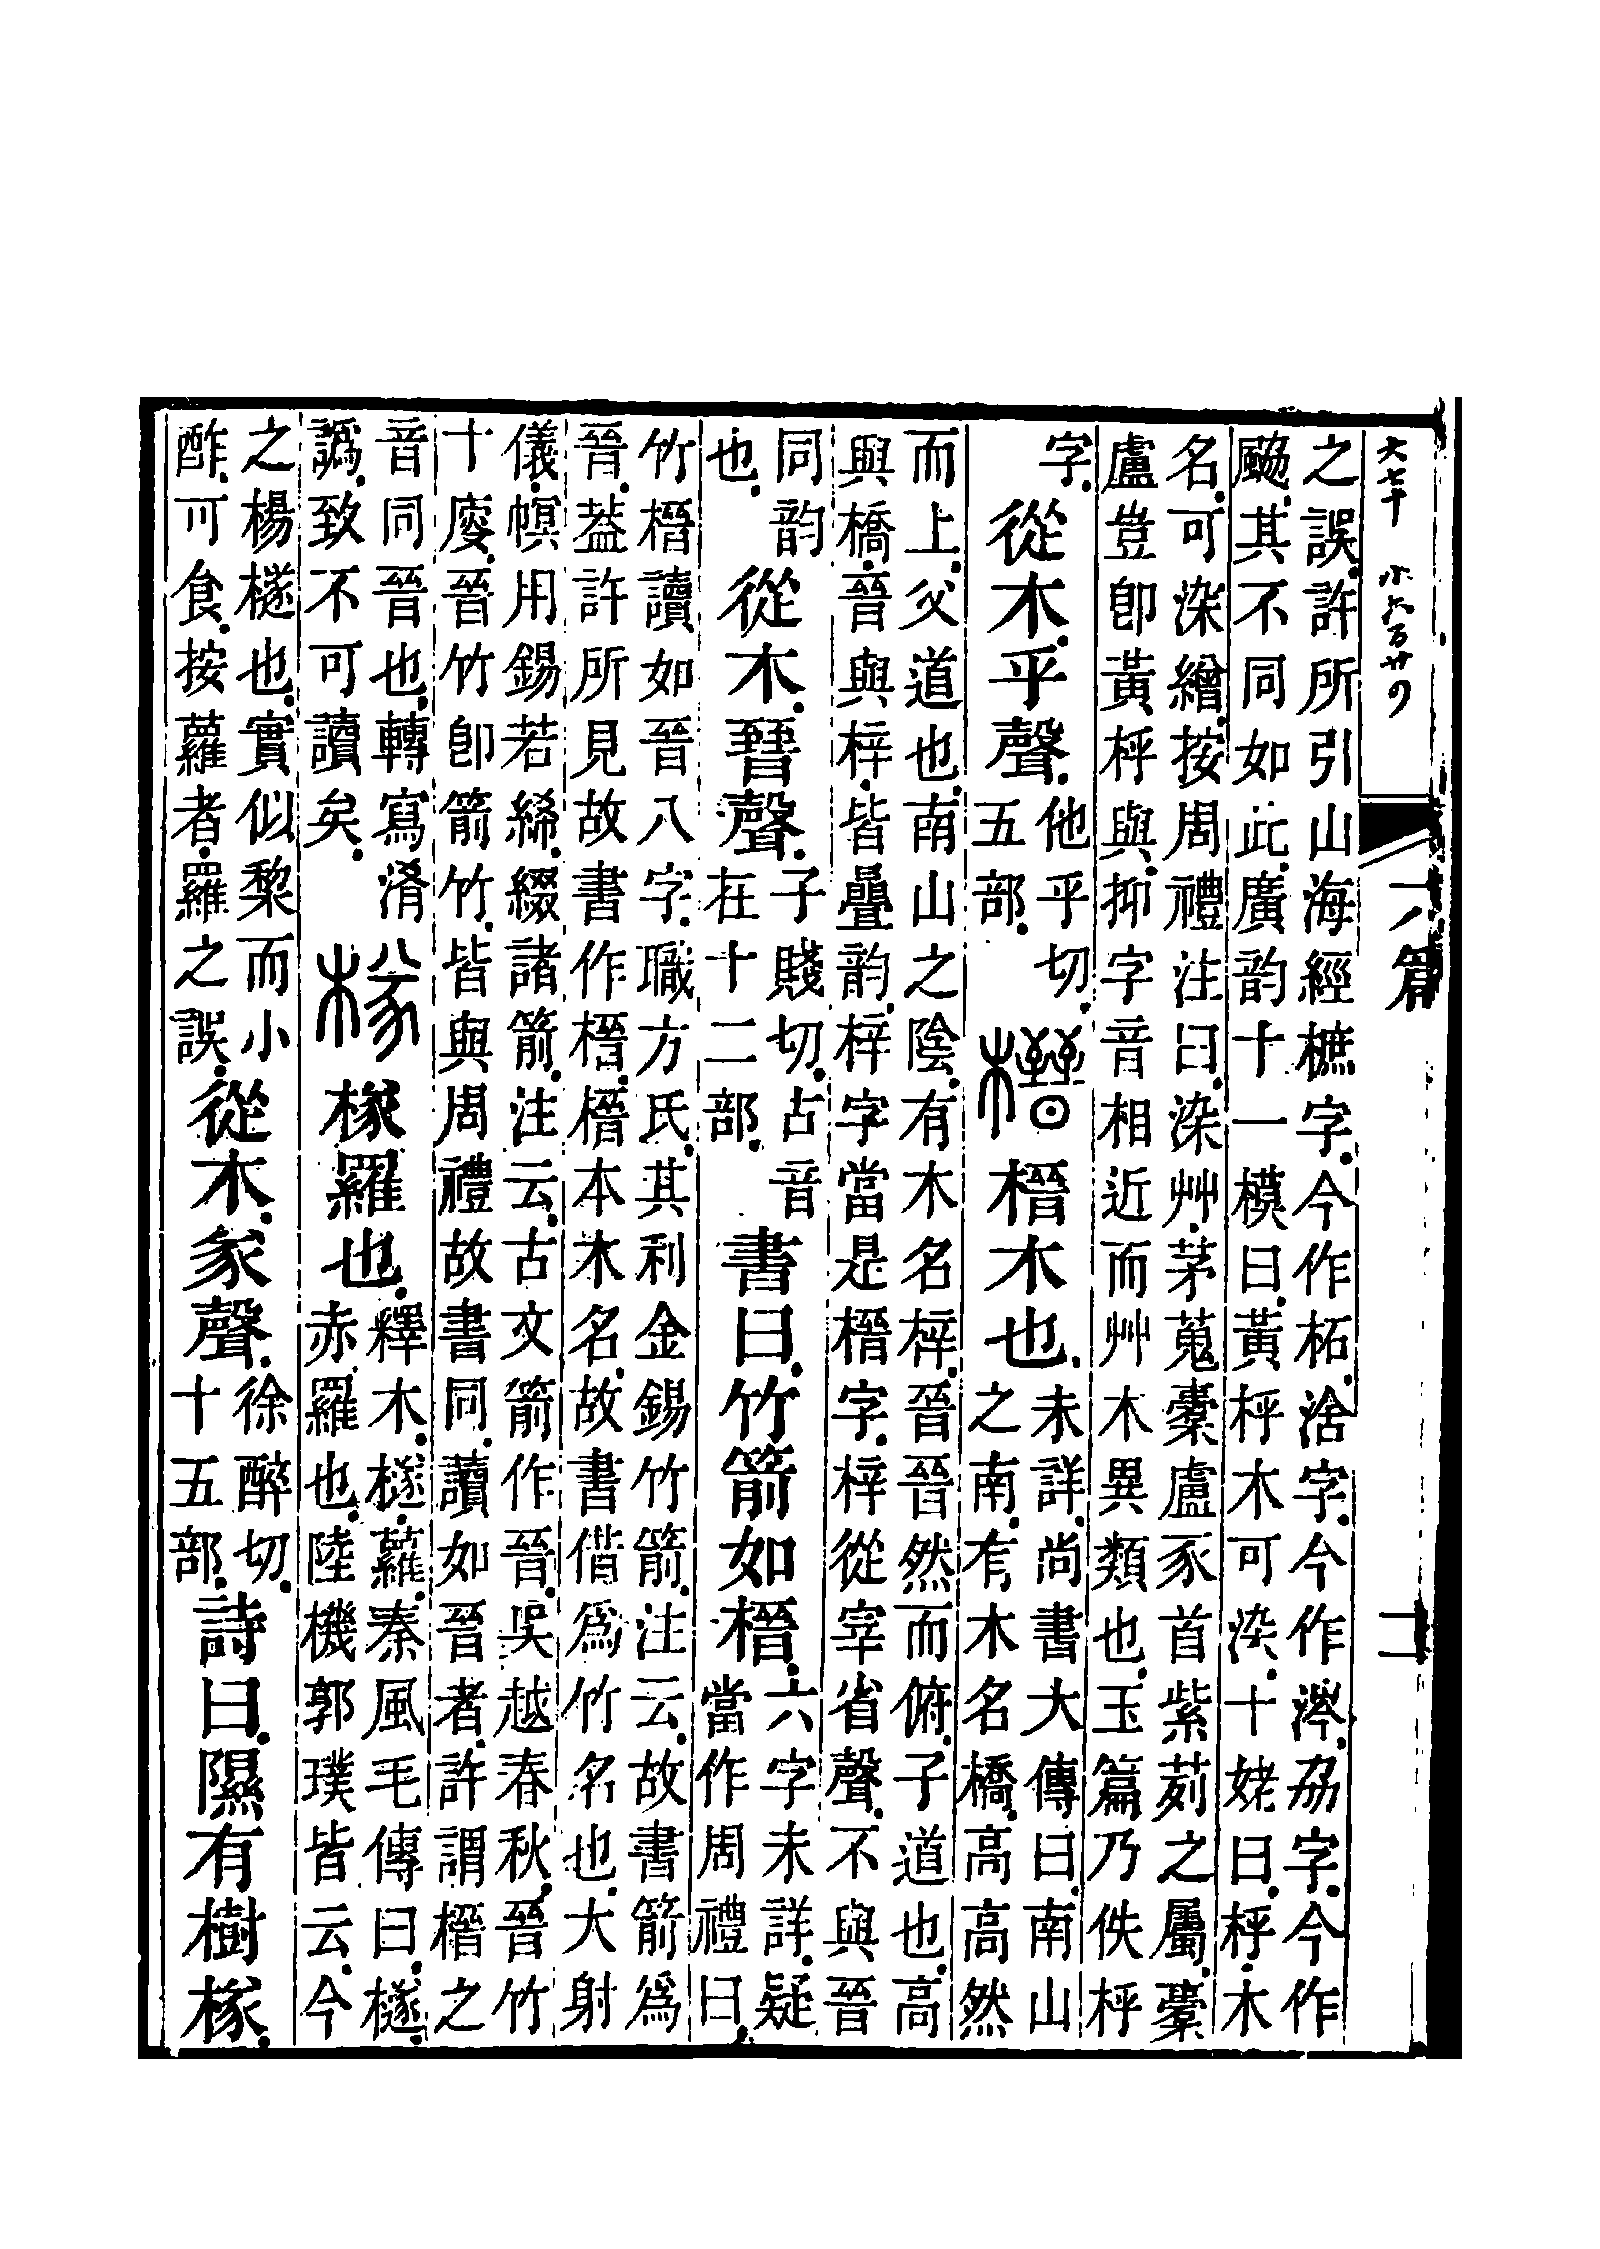 大七十 小六百廿の
六篇
二
之誤。許所引山海經樜字。今作柘。涻字。今作涔。劦字。今作
䬅。其不同如此。廣韵十一模曰。黃㭔木可染。十姥曰。㭔。木
名。可染繒。按周禮注曰。染艸。茅蒐橐盧豕首紫茢之屬。橐
盧豈卽黃㭔與。抑字音相近而艸木異類也。玉篇乃佚㭔
字。從木。乎聲。他乎切。五部。榗 榗木也。未詳。尚書大傳曰。南山之南。有木名橋。高高然
而上。父道也。南山之陰。有木名梓。晉晉然而俯。子道也。高
與橋。晉與梓。皆曡韵。梓字當是榗字。梓從宰省聲。不與晉
同韵也。從木。晉聲。子賤切。古音在十二部。書曰。竹箭如榗。六字未詳。疑當作周禮曰。
竹榗讀如晉八字。職方氏。其利金錫竹箭。注云。故書箭爲
晉。葢許所見故書作榗。榗本木名。故書借爲竹名也。大射
儀。幎用錫若絺。綴諸箭。注云。古文箭作晉。吳越春秋。晉竹
十廋。晉竹卽箭竹。皆與周禮故書同。讀如晉者。許謂榗之
音同晉也。轉寫淆譌。致不可讀矣。檖 檖羅也。釋木。檖。蘿。秦風毛傳曰。檖。赤羅也。陸機郭璞皆云。今
之楊檖也。實似棃而小
酢。可食。按蘿者。羅之誤。從木。㒸聲。徐醉切。十五部。詩曰。隰有樹檖。